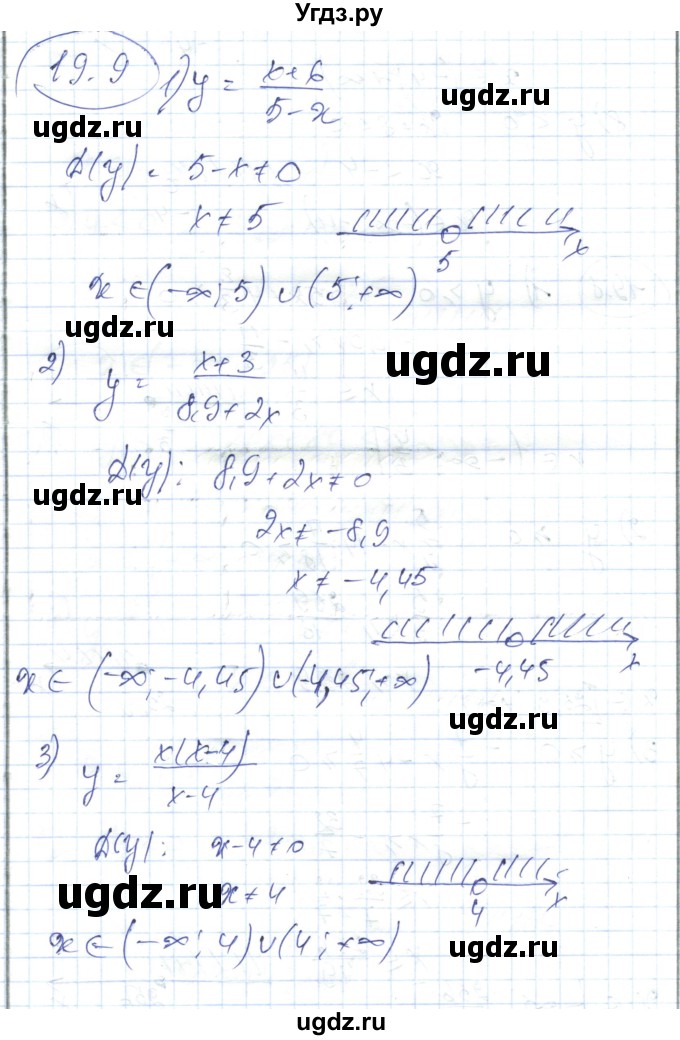 Угдз.ру
19.9 1) y = x+6 / 5-x
ugdz.ru ugdz.ru
D(y) = 5-x≠0
x ≠ 5
5 x
x ∈ (-∞; 5) ∪ (5; +∞)
ugdz.ru
2) y = x+3 / 8,9+2x
ugdz.ru
D(y): 8,9+2x≠0
ugdz.ru
2x≠ -8,9
x≠ -4,45
-4,45 x
x ∈ (-∞; -4,45) ∪ (-4,45; +∞)
ugdz.ru
3) y = x(x-4) / x-4
D(y): x-4≠0
ugdz.ru
x≠4
4 x
x ∈ (-∞; 4) ∪ (4; +∞)
ugdz.ru
ugdz.ru